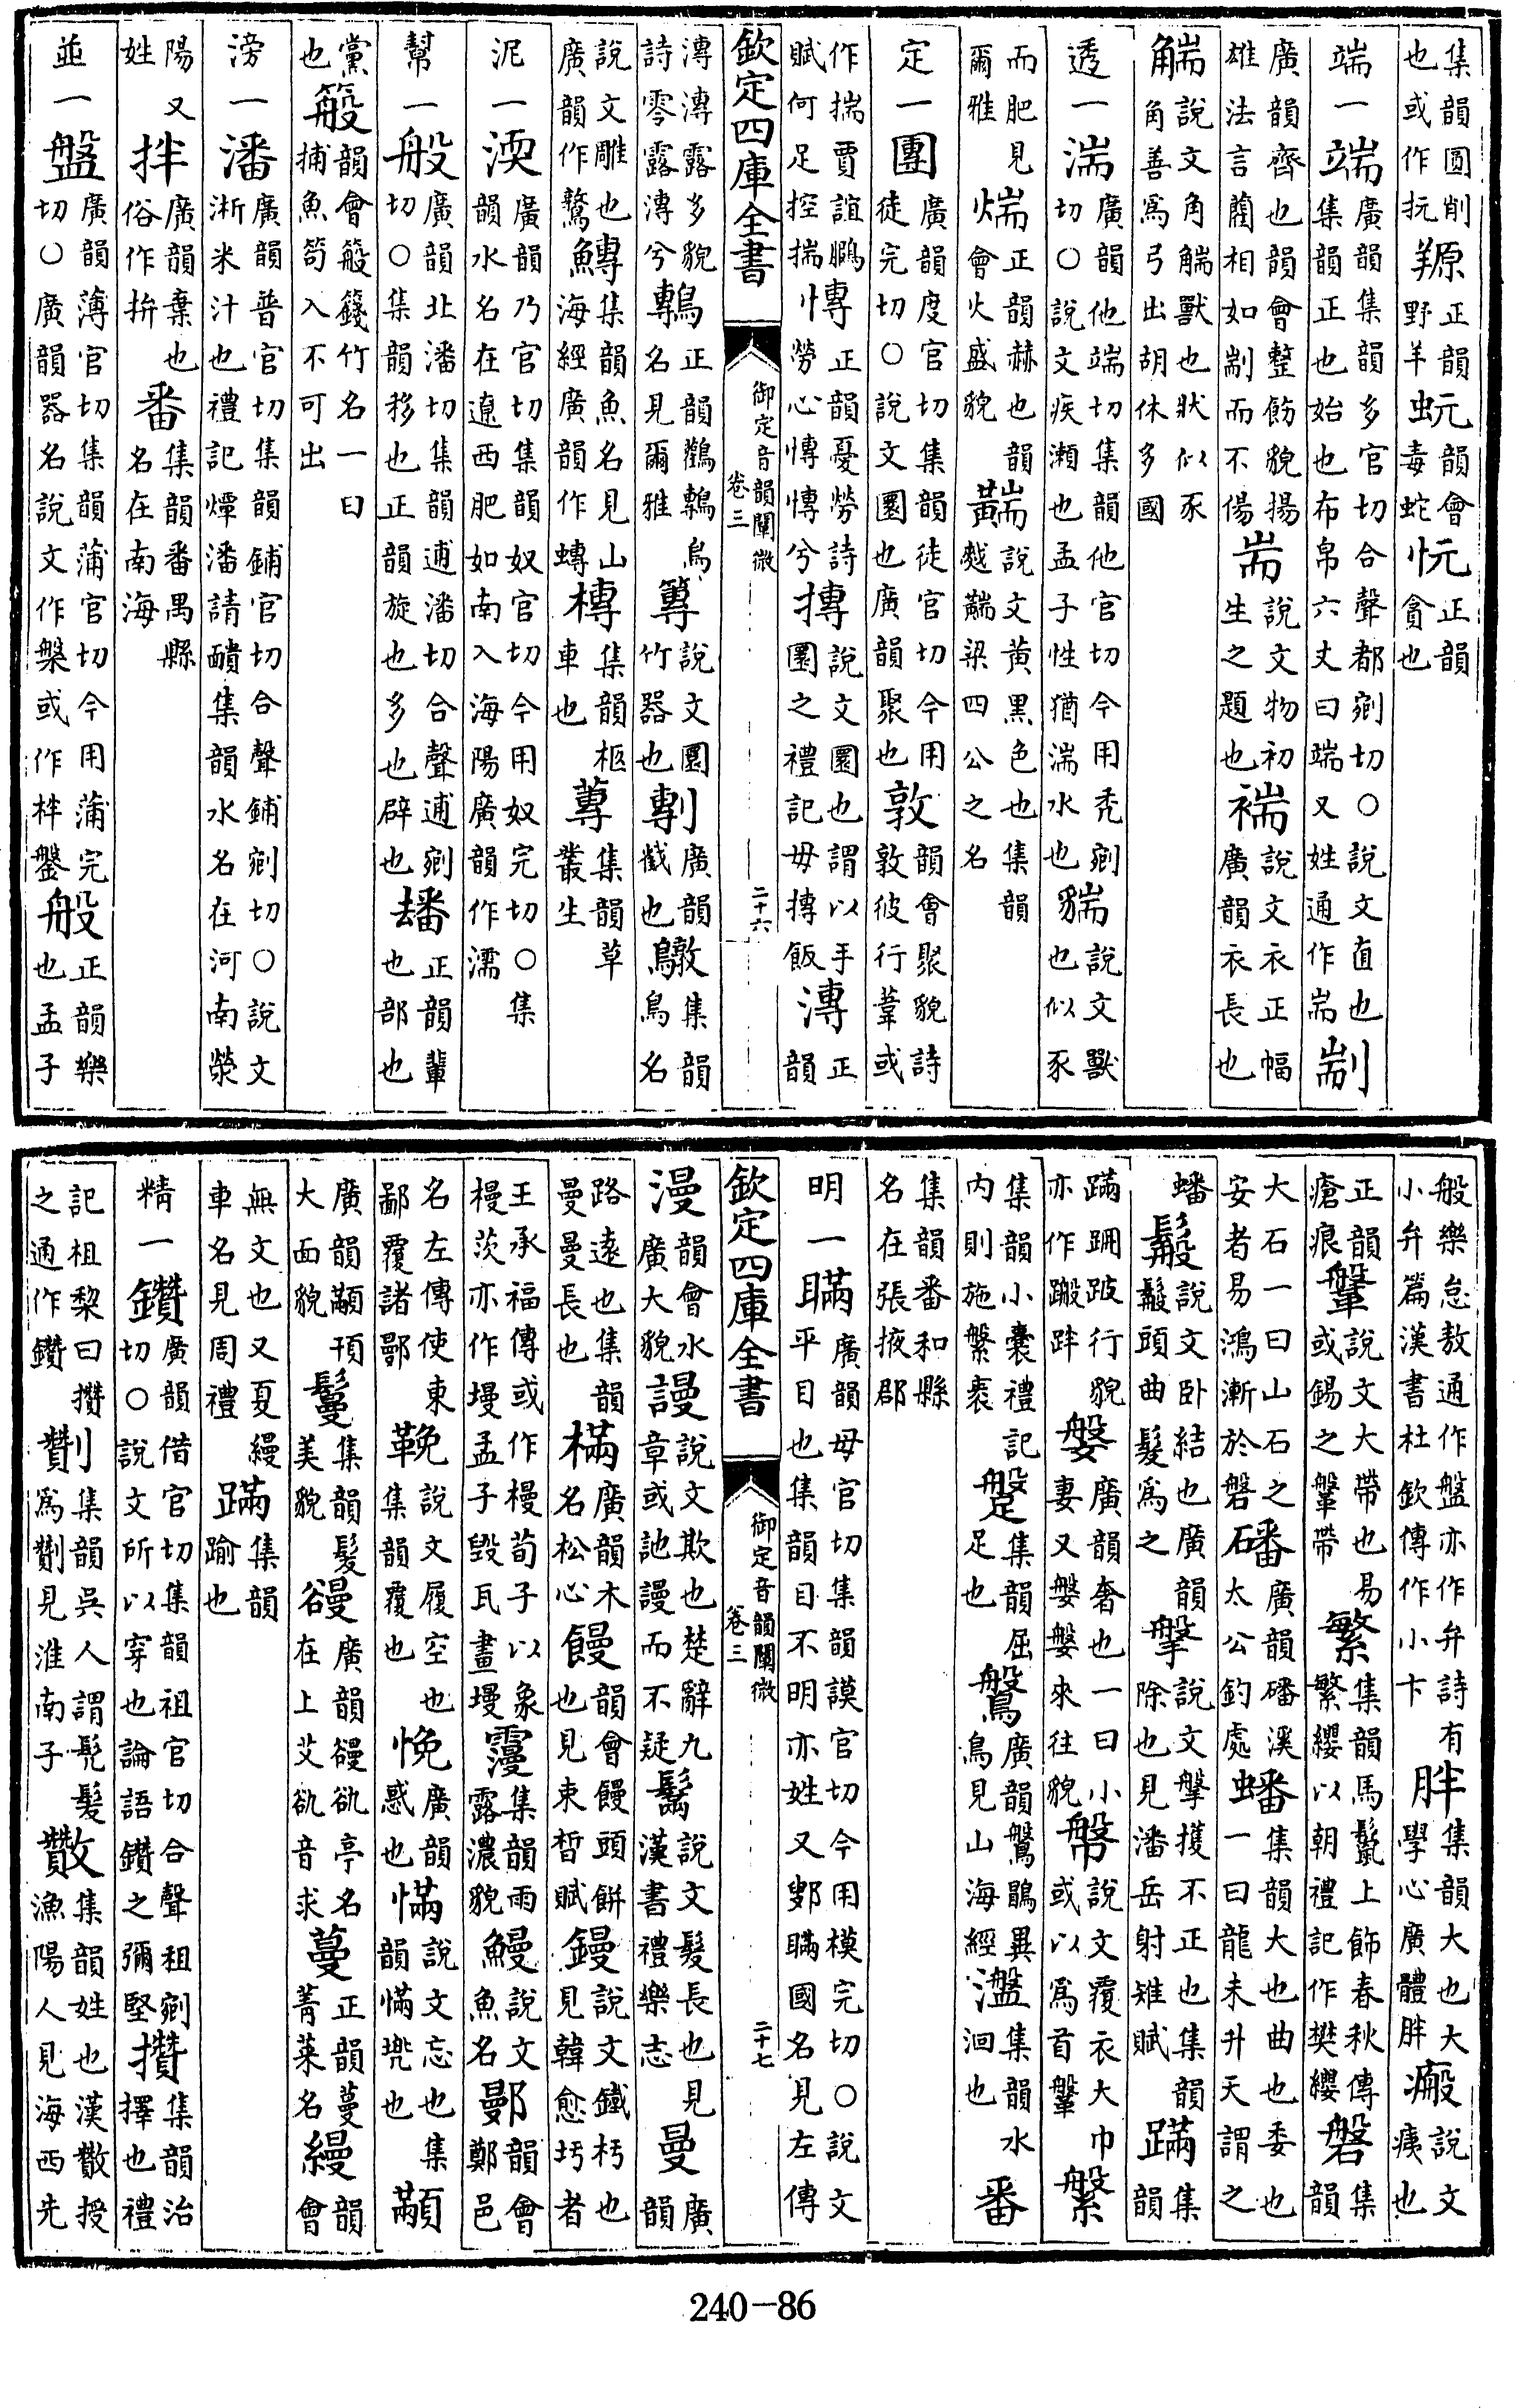 集韻圜削也或作抏羱正韻野羊蚖韻會毒蛇忨正韻貪也
端一端廣韻集韻多官切合聲都剜切○說文直也集韻正也始也布帛六丈曰端又姓通作耑剬
廣韻齊也韻會整飭貌揚雄法言藺相如剬而不傷耑說文物初生之題也褍說文衣正幅廣韻衣長也
䚎說文角䚎獸也狀似豕角善為弓出胡休多國
透一湍廣韻他端切集韻他官切今用禿剜切○說文疾瀨也孟子性猶湍水也貒說文獸也似豕
而肥見爾雅煓正韻赫也韻會火盛貌䵎說文黃黑色也集韻越䵎梁四公之名
定一團廣韻度官切集韻徒官切今用徒完切○說文圜也廣韻聚也敦韻會聚貌詩敦彼行葦或
作揣賈誼鵩賦何足控揣慱正韻憂勞詩勞心慱慱兮摶說文圜也謂以手圜之禮記毋摶飯漙正韻
欽定四庫全書 御定音韻闡微 卷三 二十六
漙漙露多貌詩零露漙兮鷒正韻鸛鷒鳥名見爾雅篿說文圜竹器也剸廣韻截也鷻集韻鳥名
說文雕也廣韻作鷻鱄集韻魚名見山海經廣韻作䗠槫集韻柩車也蓴集韻草叢生
泥一渜廣韻乃官切集韻奴官切今用奴完切○集韻水名在遼西肥如南入海陽廣韻作濡
幫一般廣韻北潘切集韻逋潘切合聲逋剜切○集韻移也正韻旋也多也辟也𤳖正韻輩也部也
黨也䈲韻會䈲籛竹名一曰捕魚笱入不可出
滂一潘廣韻普官切集韻鋪官切合聲鋪剜切○說文淅米汁也禮記燂潘請靧集韻水名在河南滎
陽又姓拌廣韻棄也俗作拚番集韻番禺縣名在南海
並一盤廣韻薄官切集韻蒲官切今用蒲完切○廣韻器名說文作槃或作柈鎜般正韻樂也孟子
般樂怠敖通作盤亦作弁詩有小弁篇漢書杜欽傳作小卞胖集韻大也大學心廣體胖瘢說文痍也
正韻瘡痕鞶說文大帶也易或錫之鞶帶繁集韻馬鬣上飾春秋傳繁纓以朝禮記作樊纓磐集韻
大石一曰山石之安者易鴻漸於磐磻廣韻磻溪太公釣處蟠集韻大也曲也委也一曰龍未升天謂之
蟠鬆說文臥結也廣韻鬆頭曲髮為之搫說文搫擭不正也集韻除也見潘岳射雉賦蹣集韻
蹣跚跛行貌亦作蹣跘媻廣韻奢也一曰小妻又媻媻來往貌幋說文覆衣大巾或以為首鞶縏
集韻小囊禮記內則施縏袠蹩集韻屈足也鷩廣韻鷩鶥異鳥見山海經瀊集韻水洄也番
集韻番和縣名在張掖郡
明一瞞廣韻毋官切集韻謨官切今用模完切○說文平目也集韻目不明亦姓又鄋瞞國名見左傳
欽定四庫全書 御定音韻闡微 卷三 二十七
漫韻會水廣大貌謾說文欺也楚辭九章或訑謾而不疑鬗說文髮長也見漢書禮樂志曼廣韻
路遠也集韻曼曼長也樠廣韻木名松心饅韻會饅頭餅也見束皙賦鏝說文鐵杇也見韓愈圬者
王承福傳或作槾荀子以槾茨亦作墁孟子毀瓦畫墁𩆓集韻雨露濃貌鰻說文魚名鄤韻會鄭邑
名左傳使東鄙覆諸鄤鞔說文履空也集韻覆也悗廣韻惑也慲說文忘也集韻慲兜也顢
廣韻顢頇大面貌鬘集韻髮美貌𧯆廣韻𧯆㰸亭名在上艾㰸音求蔓正韻蔓菁菜名縵韻會
無文也又夏縵車名見周禮蹣集韻踰也
精一鑽廣韻借官切集韻祖官切合聲祖剜切○說文所以穿也論語鑽之彌堅攢集韻治擇也禮
記柤棃曰攢之通作鑽劗集韻吳人謂髡髮為劗見淮南子㪥集韻姓也漢㪥授漁陽人見海西先
240-86